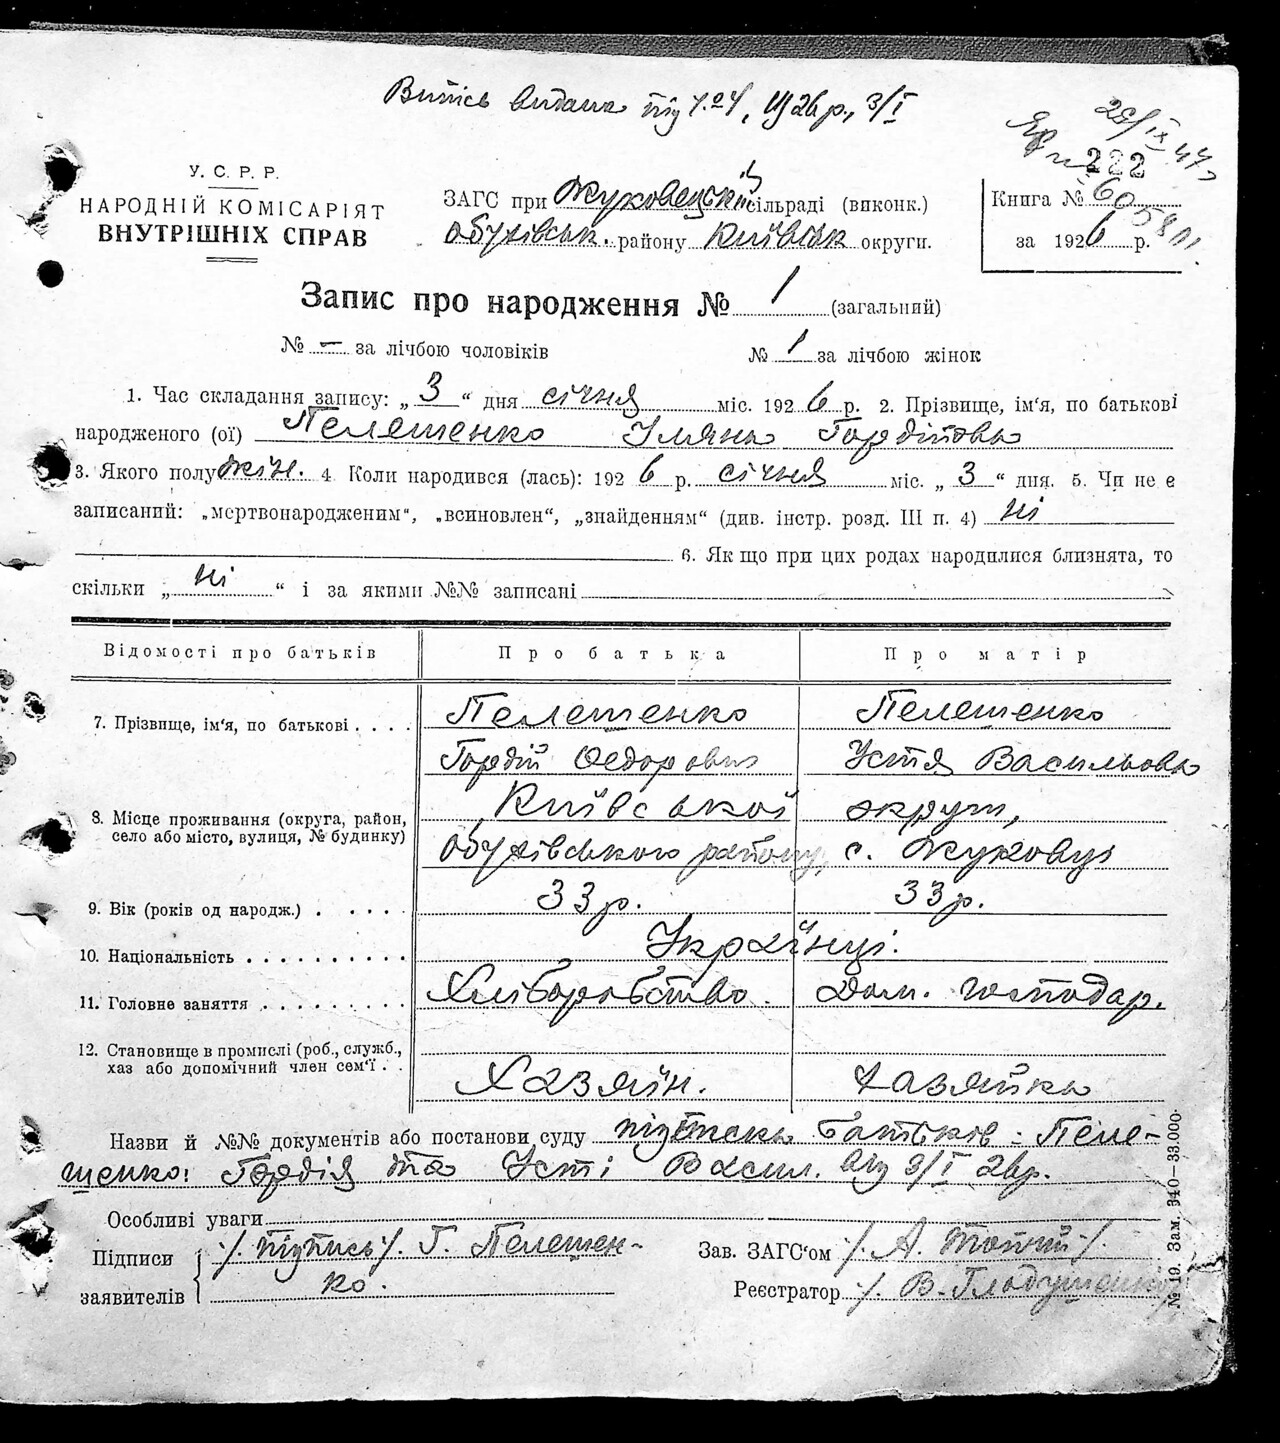 Витісь видана під ч.º4, 1926 р., 3/I
28/IX 47
222
У. С. Р. Р.
НАРОДНІЙ КОМІСАРІЯТ
ВНУТРІШНІХ СПРАВ
ЗАГС при Жуковецькій сільраді (виконк.)
Обухівськ. району Київськ округи.
Книга №
за 1926 р.
Запис про народження № 1 (загальний)
№ – за лічбою чоловіків № 1 за лічбою жінок
1. Час складання запису: „3“ дня січня міс. 1926 р. 2. Прізвище, ім'я, по батькові
народженого (ої) Пелешенко Уляна Гордійовна
3. Якого полу жін. 4 Коли народився (лась): 1926 р. січня міс. „3“ дня. 5. Чи не є
записаний: „мертвонародженим“, „всиновлен“, „знайденям“ (див. інстр. розд. III п. 4) ні
6. Як що при цих родах народилися близнята, то
скільки „ні“ і за якими №№ записані
Відомості про батьків Про батька Про матір
7. Прізвище, ім'я, по батькові . . . . Пелешенко Пелешенко
Гордій Федорович Устя Васильовна
8. Місце проживання (округа, район, село або місто, вулиця, № будинку) Київської округи,
Обухівського району, с. Жуковці
9. Вік (років од народж.) . . . . . 33 р. 33 р.
10. Національність . . . . . . . . . . Українці.
11. Головне заняття . . . . . . . . . Хліборобство. Дом. господар.
12. Становище в промислі (роб., служб.,
хаз або допомічний член сем'ї . . Хазяїн. Хазяйка
Назви й №№ документів або постанови суду підписка батьків: Пеле-
шенко: Гордія та Усті Васил. від 3/I 26 р.
Особливі уваги
Підписи /. підпись/. Г. Пелешен- Зав. ЗАГС'ом /. А. /.
заявителів ко. Реєстратор /. В. Гладушенко
№ 19. Зам. 340—33.000